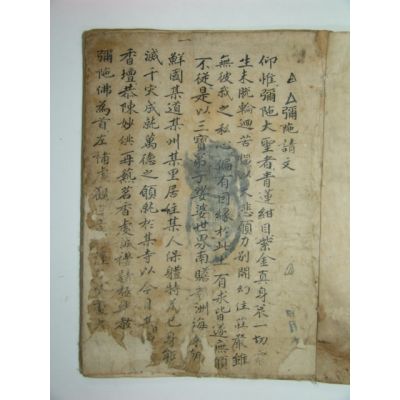 △△彌陁請文
仰惟彌陁大聖者青蓮紺目紫金真身一切
生未脫輪迴苦以悲願力別開幻住莊嚴雖
無彼我之私心偏有因緣於此土有求皆遂無願
不從是以三宝弟子娑婆世界南贍部洲海東朝
鮮國某道某州某里居住某人保體特爲己身
滅千灾成就萬德之願就於某寺以今月某
香壇恭陳妙供再爇茗香虔禮請極
彌陁佛為首左補處觀音